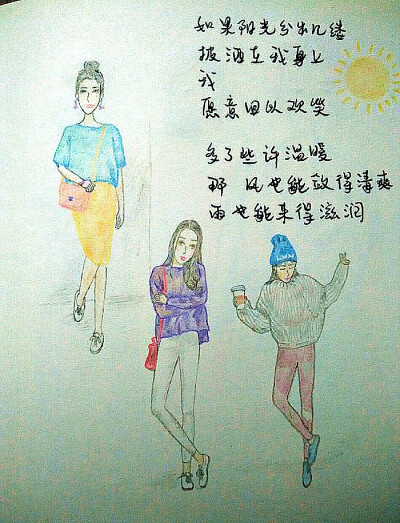 如果阳光分出几缕
披洒在我身上
我
愿意回以欢笑
多了些许温暖
那风也能敛得清爽
雨也能来得滋润